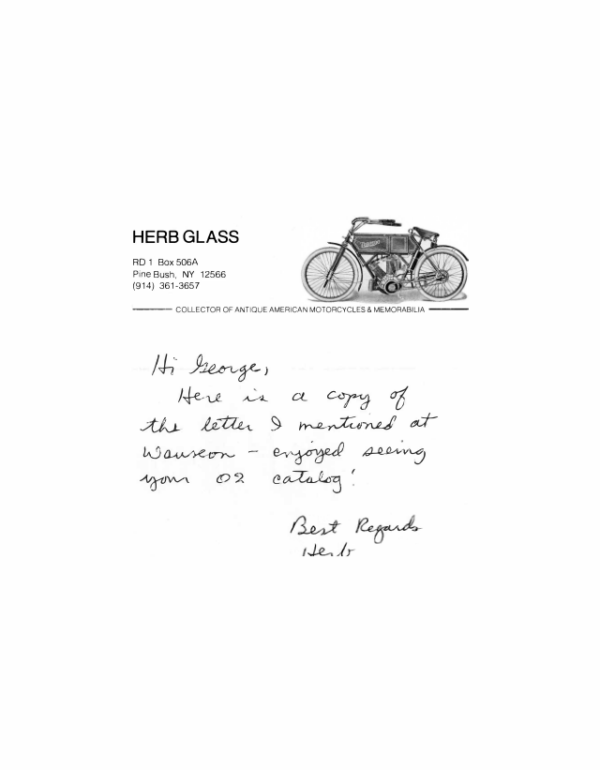 HERB GLASS
RD 1 Box 506A
Pine Bush, NY 12566
(914) 361-3657
COLLECTOR OF ANTIQUE AMERICAN MOTORCYCLES & MEMORABILIA
Hi George,
Here is a copy of
the letter I mentioned at
Wauseon – enjoyed seeing
your 02 catalog!
Best Regards
Herb